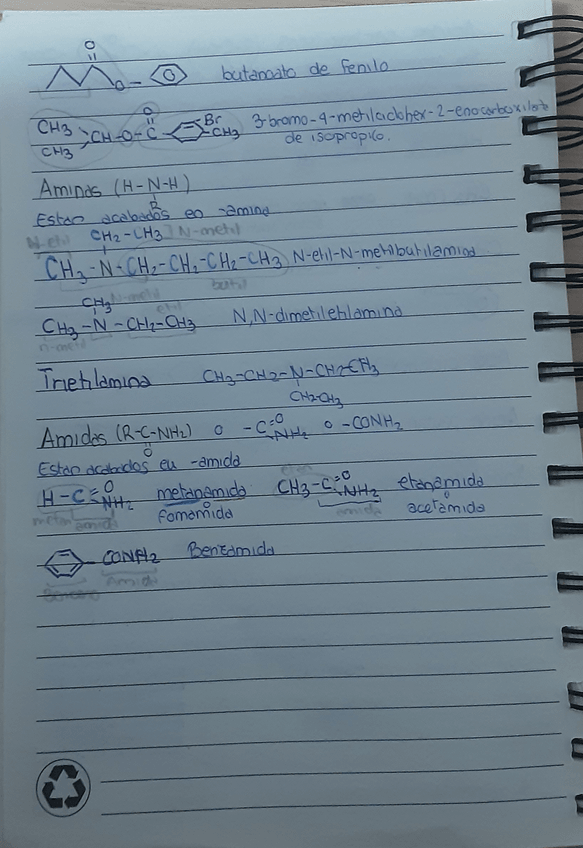 O
O- butanoato de fenilo
O
CH3 CH-O-C Br CH3 3-bromo-4-metilciclohex-2-enocarboxilato
CH3 de isopropilo.
Aminas (H-N-H)
R
Estan acabados en -amina
N-etil CH2-CH3 N-metil
CH3-N-CH2-CH2-CH2-CH3 N-etil-N-metilbutilamina
butil
CH3 N-metil etil
CH3-N-CH2-CH3 N,N-dimetiletilamina
n-metil
Trietilamina CH3-CH2-N-CH2-CH3
CH2CH3
Amidas (R-C-NH2) o -C=O NH2 o -CONH2
O
Estan acabados en -amida
H-C=O NH2 metanamida CH3-C=O NH2 etanamida
metan amida formamida amida o acetamida
CONH2 Benzamida
Benceno Amida